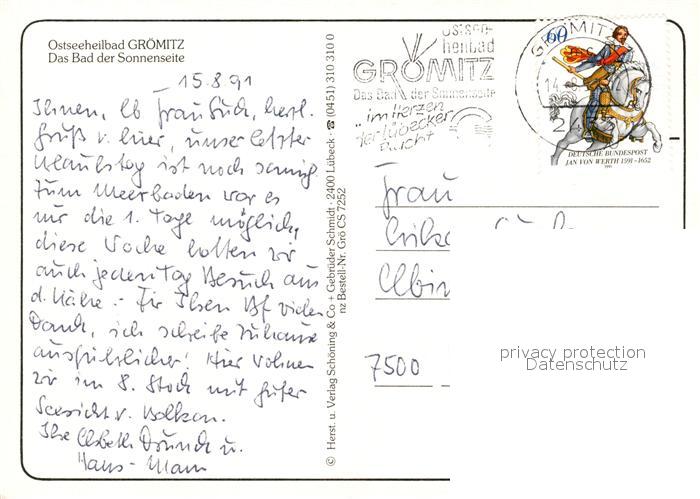 Ostseeheilbad GRÖMITZ
Das Bad der Sonnenseite
15.8.91
Ihnen, lb Frau herzl.
Gruß v. hier, unser letzter
Urlaubstag ist noch sonnig
zum Meerbaden war es
nur die 1. Tage möglich,
diese Woche hatten wir
auch jeden Tag Besuch aus
d. Nähe. - Für Ihren Bf vielen
Dank, ich schreibe zuhause
ausführlicher! Hier wohnen
wir im 8. Stock mit guter
Seesicht v. Balkon.
Ihre Elsbeth u.
Hans-
© Herst. u. Verlag Schöning & Co + Gebrüder Schmidt · 2400 Lübeck · ☎ (0451) 310 310 0
nz Bestell-Nr. Grö CS 7252
Ostsee-
heilbad
GRÖMITZ
Das Bad der Sonnenseite
im Herzen
der Lübecker
Bucht
GRÖMITZ
14
2
60
DEUTSCHE BUNDESPOST
JAN VON WERTH 1591-1652
1991
Frau
7500
privacy protection
Datenschutz